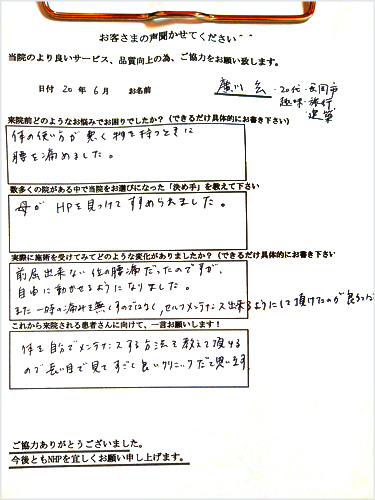 お客さまの声聞かせてください^^
当院のより良いサービス、品質向上の為、ご協力をお願い致します。
日付 20年 6月 お名前
・20代・長岡市
趣味・旅行
建築
来院前どのようなお悩みでお困りでしたか？（できるだけ具体的にお書き下さい）
体の使い方が悪く物を持つときに
腰を痛めました。
数多くの院がある中で当院をお選びになった「決め手」を教えて下さい
母が HPを見つけてすすめられました。
実際に施術を受けてみてどのような変化がありましたか？（できるだけ具体的にお書き下さい
前屈出来ない位の腰痛だったのですが、
自由に動かせるようになりました。
また一時の痛みを無くすのではなく、セルフメンテナンス出来るようにして頂けたのが良かった
これから来院される患者さんに向けて、一言お願いします！
体を自分でメンテナンスする方法を教えて頂ける
ので長い目で見てすごく良いクリニックだと思います
ご協力ありがとうございました。
今後ともNHPを宜しくお願い申し上げます。